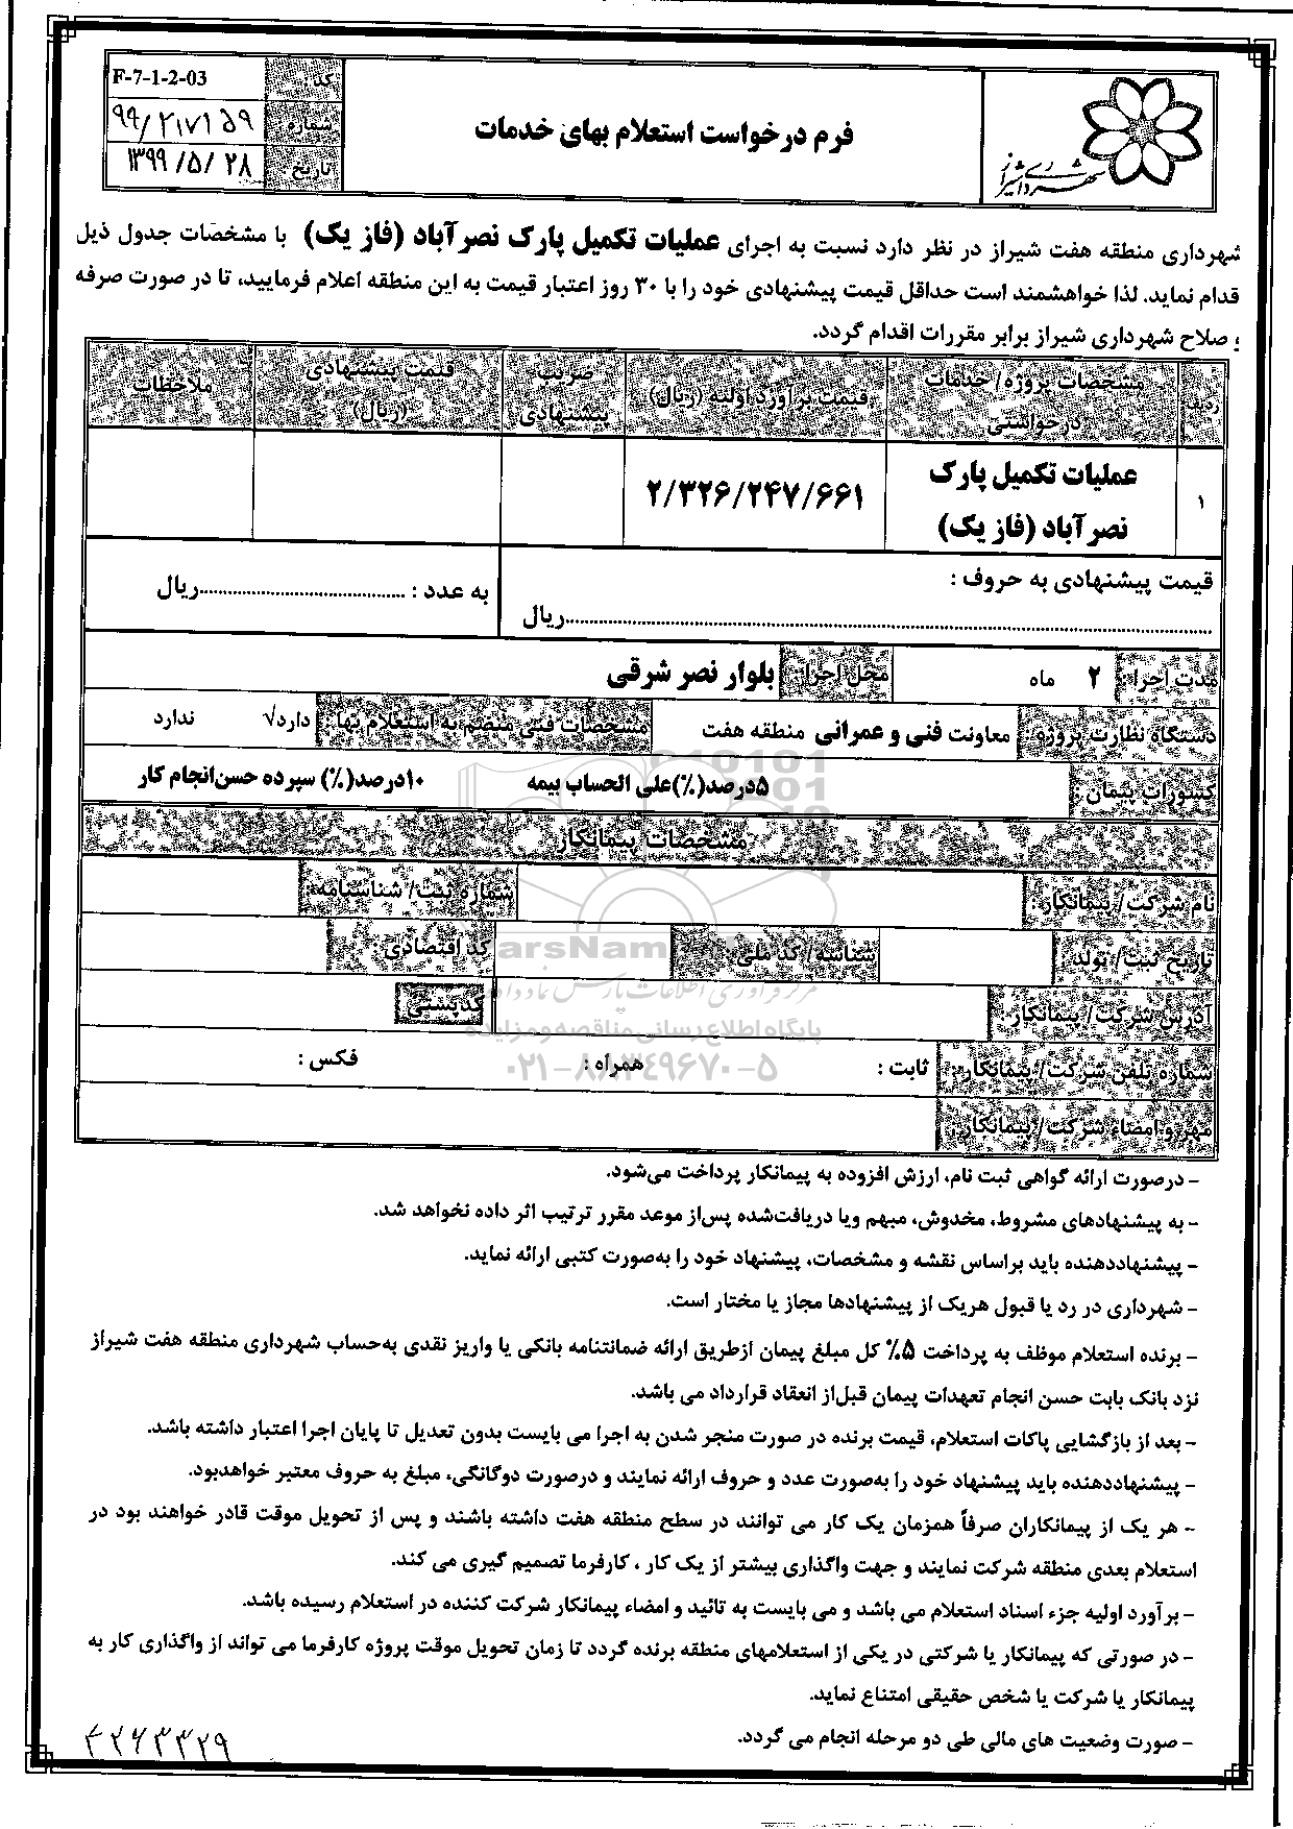 شهرداری شیراز
فرم درخواست استعلام بهای خدمات
کد : F-7-1-2-03
شماره ۹۹/۲۱۷۱۵۹
تاریخ ۱۳۹۹/۵/۲۸
شهرداری منطقه هفت شیراز در نظر دارد نسبت به اجرای عملیات تکمیل پارک نصرآباد (فاز یک) با مشخصات جدول ذیل
قدام نماید. لذا خواهشمند است حداقل قیمت پیشنهادی خود را با ۳۰ روز اعتبار قیمت به این منطقه اعلام فرمایید، تا در صورت صرفه
و صلاح شهرداری شیراز برابر مقررات اقدام گردد.
ردیف مشخصات پروژه/ خدمات درخواستی قیمت برآورد اولیه (ریال) ضریب پیشنهادی قیمت پیشنهادی (ریال) ملاحظات
۱ عملیات تکمیل پارک نصرآباد (فاز یک) ۲/۳۲۶/۲۴۷/۶۶۱
قیمت پیشنهادی به حروف : ..........ریال به عدد : ..........ریال
مدت اجرا : ۲ ماه محل اجرا : بلوار نصر شرقی
دستگاه نظارت پروژه : معاونت فنی و عمرانی منطقه هفت مشخصات فنی منضم به استعلام بها : دارد√ ندارد
کسورات پیمان : ۵درصد(٪)علی الحساب بیمه ۱۰درصد(٪) سپرده حسن‌انجام کار
مشخصات پیمانکار
نام شرکت/ پیمانکار : شماره ثبت/ شناسنامه:
تاریخ ثبت/ تولد : شناسه/ کد ملی : کد اقتصادی :
آدرس شرکت/ پیمانکار : کدپستی
شماره تلفن شرکت/ پیمانکار : ثابت : همراه : فکس :
مهر و امضاء شرکت/ پیمانکار :
- درصورت ارائه گواهی ثبت نام، ارزش افزوده به پیمانکار پرداخت می‌شود.
- به پیشنهادهای مشروط، مخدوش، مبهم ویا دریافت‌شده پس‌از موعد مقرر ترتیب اثر داده نخواهد شد.
- پیشنهاددهنده باید براساس نقشه و مشخصات، پیشنهاد خود را به‌صورت کتبی ارائه نماید.
- شهرداری در رد یا قبول هریک از پیشنهادها مجاز یا مختار است.
- برنده استعلام موظف به پرداخت ۵٪ کل مبلغ پیمان ازطریق ارائه ضمانتنامه بانکی یا واریز نقدی به‌حساب شهرداری منطقه هفت شیراز
نزد بانک بابت حسن انجام تعهدات پیمان قبل‌از انعقاد قرارداد می باشد.
- بعد از بازگشایی پاکات استعلام، قیمت برنده در صورت منجر شدن به اجرا می بایست بدون تعدیل تا پایان اجرا اعتبار داشته باشد.
- پیشنهاددهنده باید پیشنهاد خود را به‌صورت عدد و حروف ارائه نمایند و درصورت دوگانگی، مبلغ به حروف معتبر خواهدبود.
- هر یک از پیمانکاران صرفاً همزمان یک کار می توانند در سطح منطقه هفت داشته باشند و پس از تحویل موقت قادر خواهند بود در
استعلام بعدی منطقه شرکت نمایند و جهت واگذاری بیشتر از یک کار ، کارفرما تصمیم گیری می کند.
- برآورد اولیه جزء اسناد استعلام می باشد و می بایست به تائید و امضاء پیمانکار شرکت کننده در استعلام رسیده باشد.
- در صورتی که پیمانکار یا شرکتی در یکی از استعلامهای منطقه برنده گردد تا زمان تحویل موقت پروژه کارفرما می تواند از واگذاری کار به
پیمانکار یا شرکت یا شخص حقیقی امتناع نماید.
- صورت وضعیت های مالی طی دو مرحله انجام می گردد.
پایگاه اطلاع رسانی مناقصه و مزایده